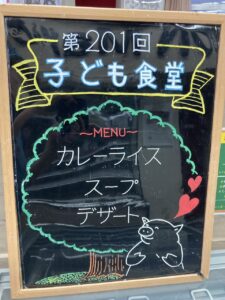 第201回
子ども食堂
~MENU~
カレーライス
スープ
デザート